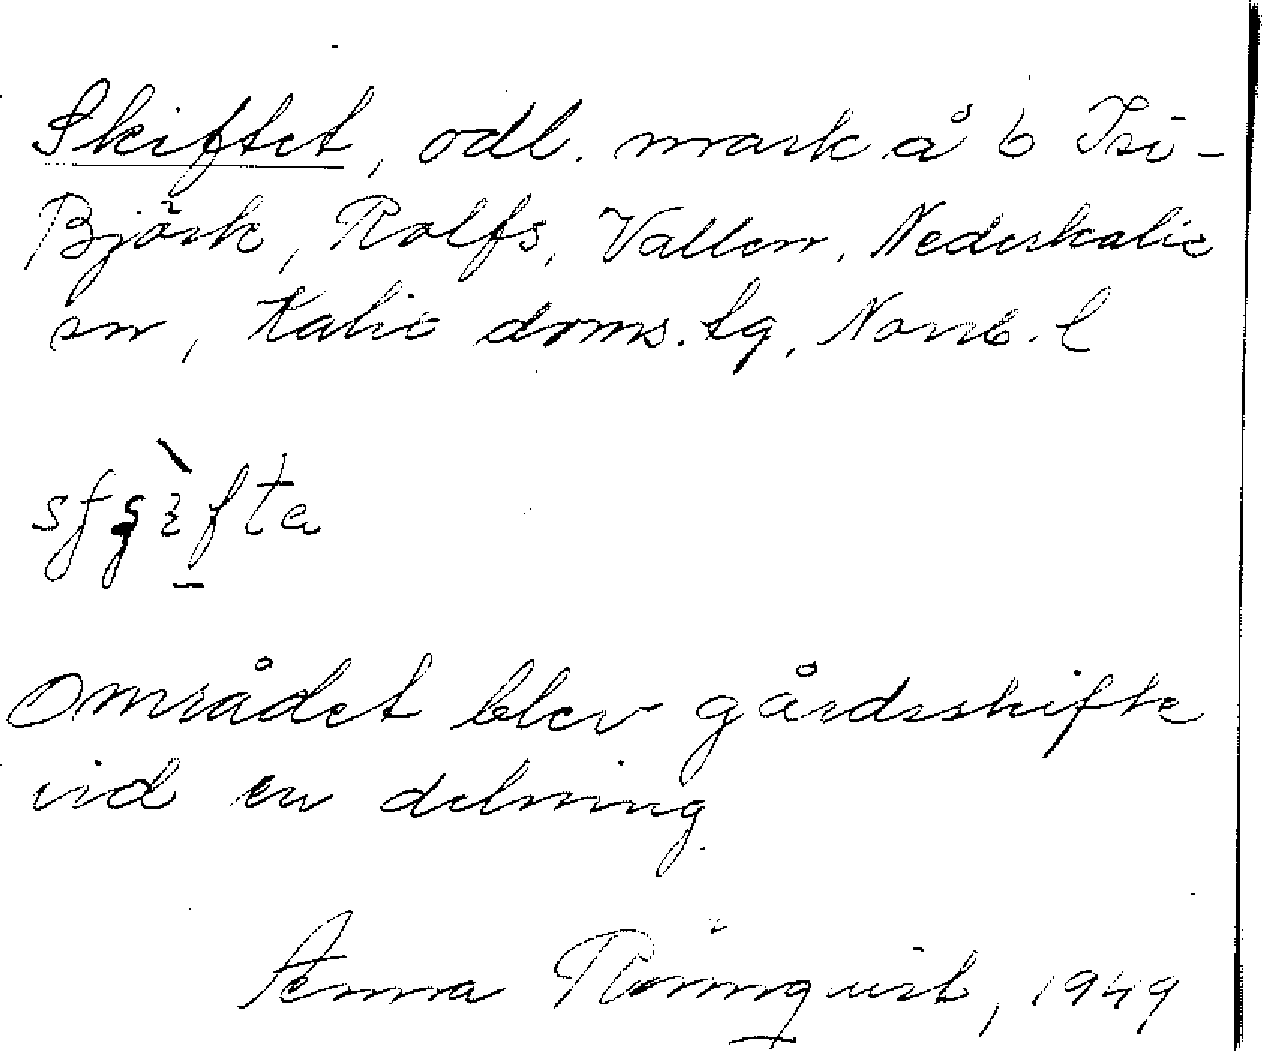 Skiftet, odl. mark å 6 Isi-
Björk, Rolfs, Vallen, Nederkalix
sn, Kalix doms. tg, Norrb. l
Området blev gårdsskifte
vid en delning
Anna Rönnqvist, 1949